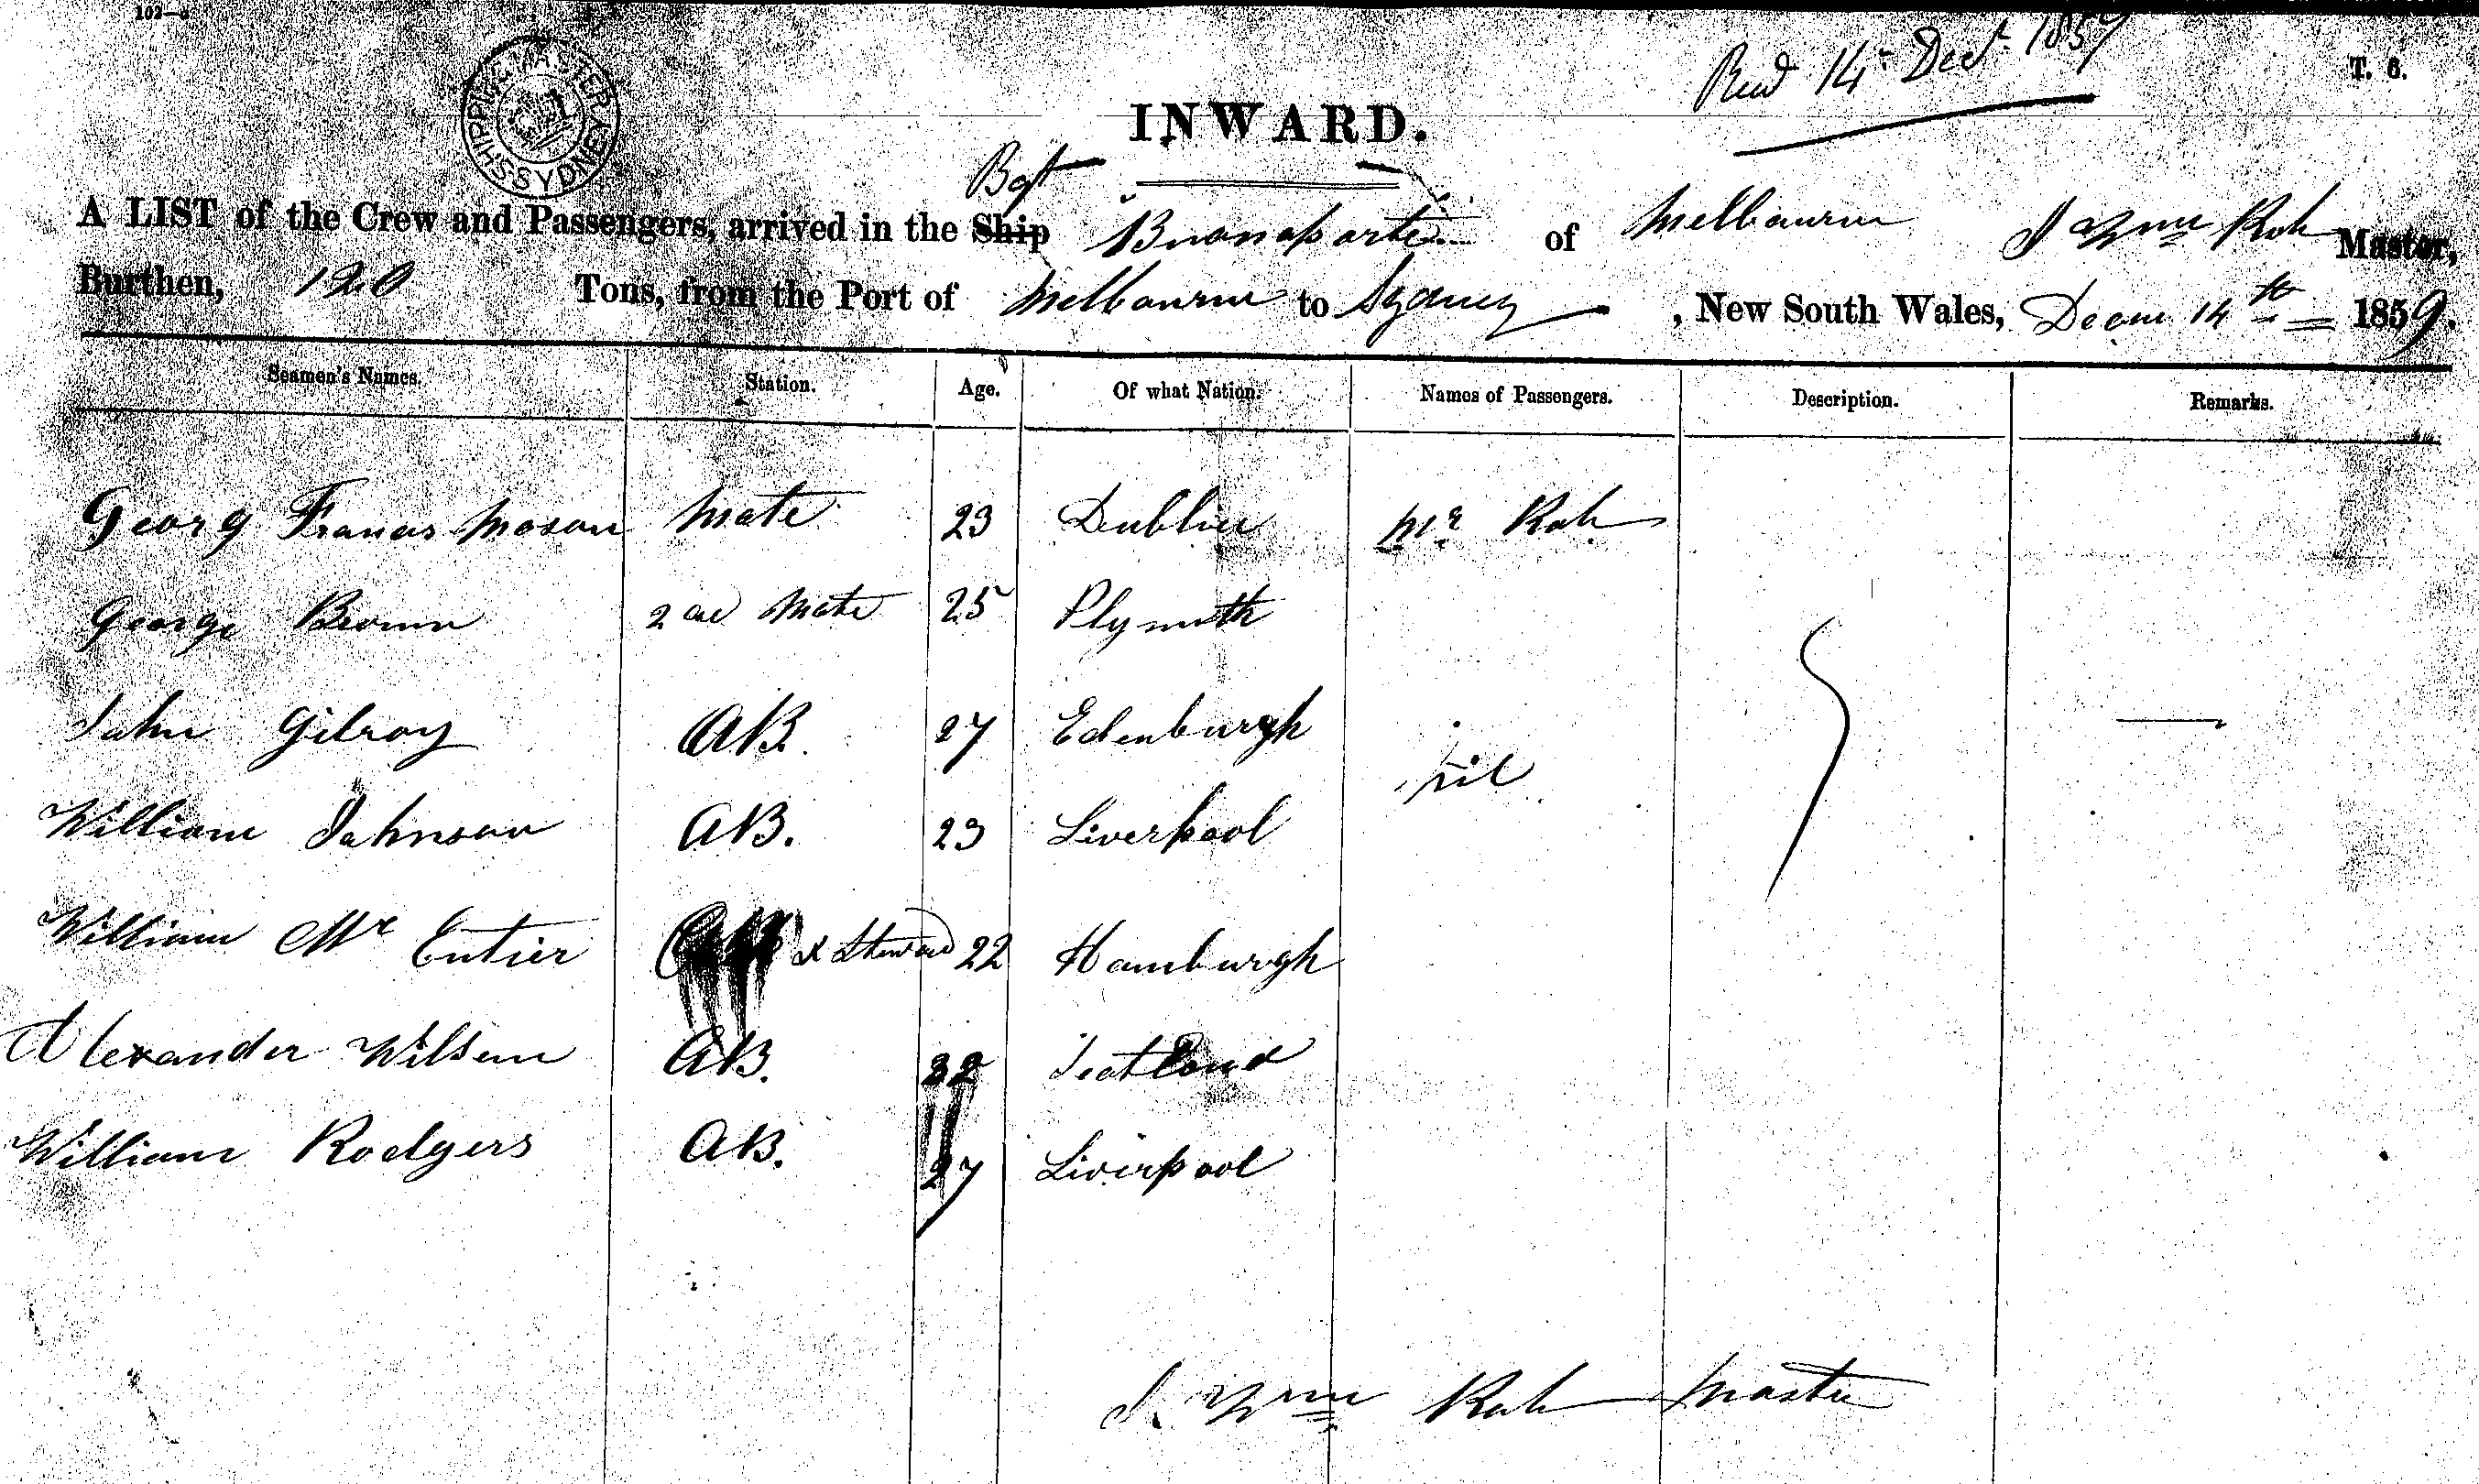 102—
SHIPPING MASTER SYDNEY
Recd 14th Decr 1859
T. 6.
INWARD.
Bgt
A LIST of the Crew and Passengers, arrived in the Ship Buonaparte of Melbourne J Wm Roh Master,
Burthen, 120 Tons, from the Port of Melbourne to Sydney, New South Wales, Decm 14th 1859.
Seamen's Names. Station. Age. Of what Nation. Names of Passengers. Description. Remarks.
Georg Francis Mason Mate 23 Dublin Mr Roh
George Brown 2nd Mate 25 Plymuth
John Gilroy AB. 27 Edenburgh
nil
William Johnson AB. 23 Liverpool
William Mc Entier & Steward 22 Hamburgh
Alexander Wilson AB. 32 Scotland
William Rodgers AB. 27 Liverpool
J. Wm Roh Master